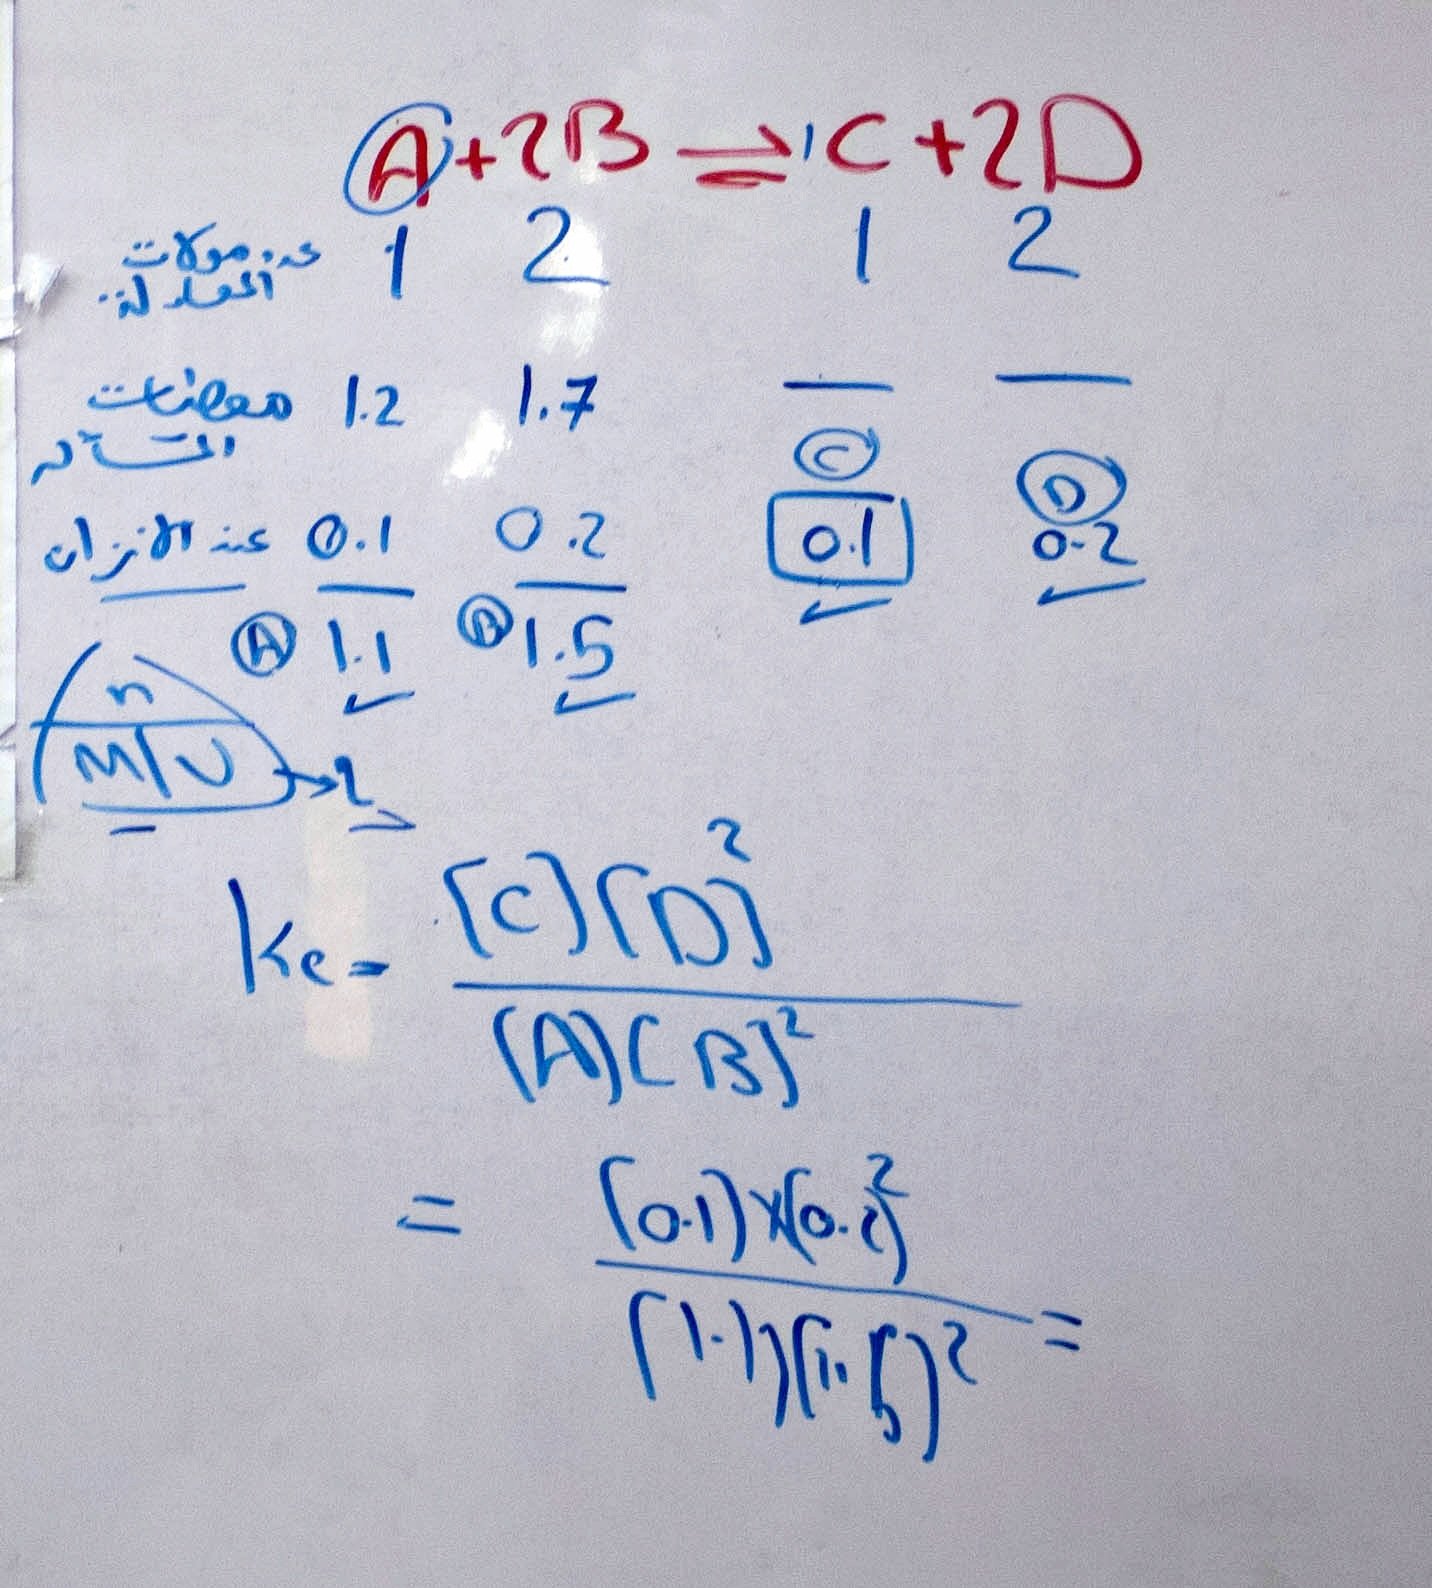 A + 2B ⇌ 1C + 2D
عدد مولات 1 2 1 2
المعادلة
معطيات 1.2 1.7 — —
المسألة
C D
عند الاتزان 0.1 0.2 0.1 0.2
A 1.1 B 1.5
n
M | V → 1
Kc = [C][D]² / [A][B]²
= (0.1)×(0.2)² / (1.1)(1.5)² =